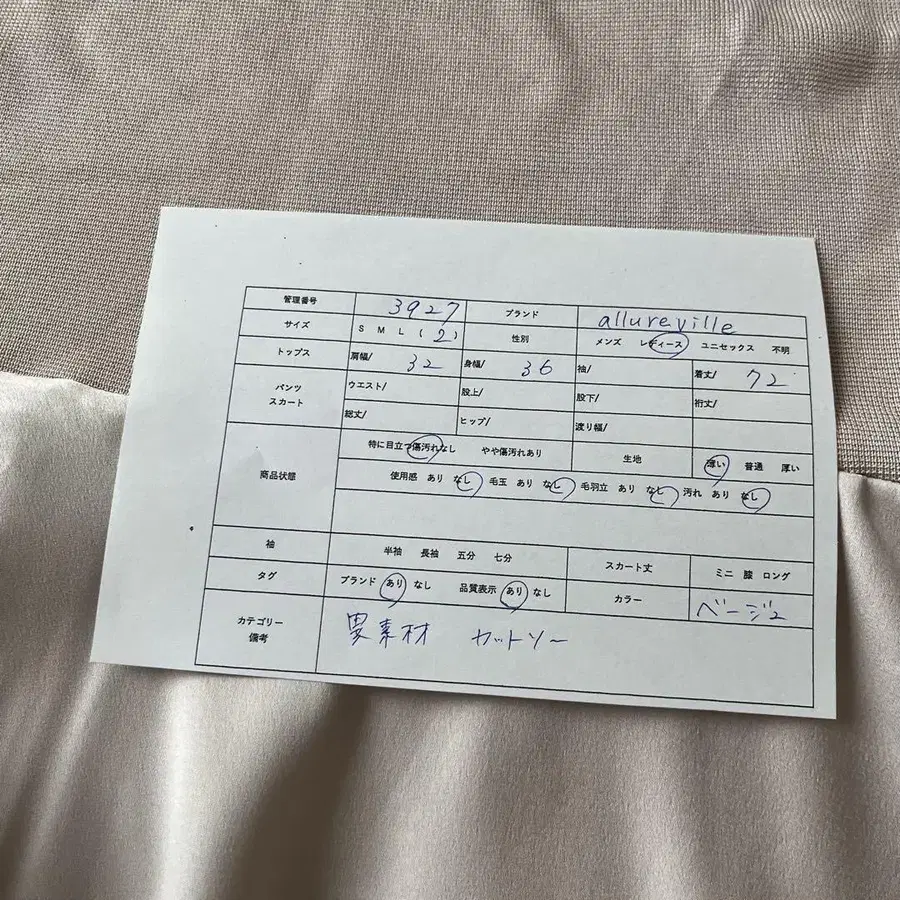 管理番号 3927 ブランド allureville
サイズ S M L (2) 性別 メンズ レディース ユニセックス 不明
トップス 肩幅/ 32 身幅/ 36 袖/ 着丈/ 72
パンツ スカート ウエスト/ 股上/ 股下/ 裄丈/
総丈/ ヒップ/ 渡り幅/
商品状態 特に目立つ傷汚れなし やや傷汚れあり 生地 薄い 普通 厚い
使用感 あり なし 毛玉 あり なし 毛羽立 あり なし 汚れ あり なし
袖 半袖 長袖 五分 七分 スカート丈 ミニ 膝 ロング
タグ ブランド あり なし 品質表示 あり なし カラー ベージュ
カテゴリー 備考 異素材 カットソー